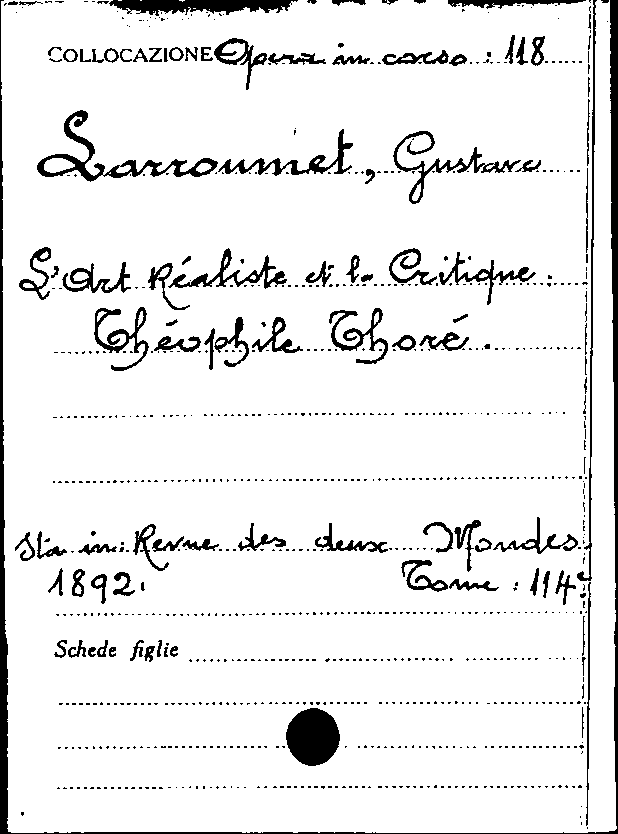 COLLOCAZIONE Opera in corso : 118
Larroumet, Gustave
L'Art Réaliste et la Critique.
Théophile Thoré.
Sta in: Revue des deux Mondes.
1892. Tome : 114º.
Schede figlie